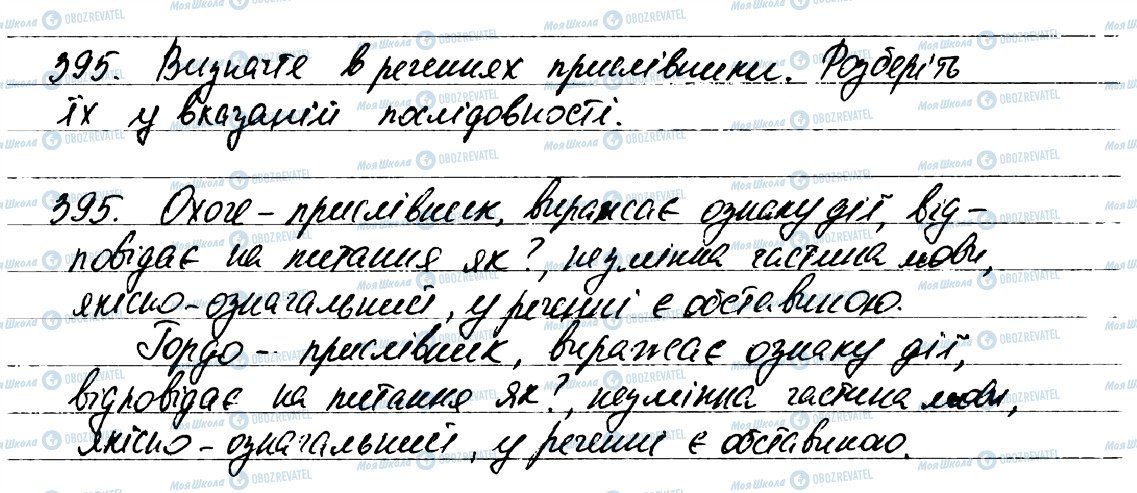 395. Визначте в реченнях прислівники. Розберіть
їх у вказаній послідовності.
395. Охоче - прислівник, виражає ознаку дії, від-
повідає на питання як?, незмінна частина мови,
якісно-означальний, у реченні є обставиною.
Гордо - прислівник, виражає ознаку дії,
відповідає на питання як?, незмінна частина мови,
якісно-означальний, у реченні є обставиною.